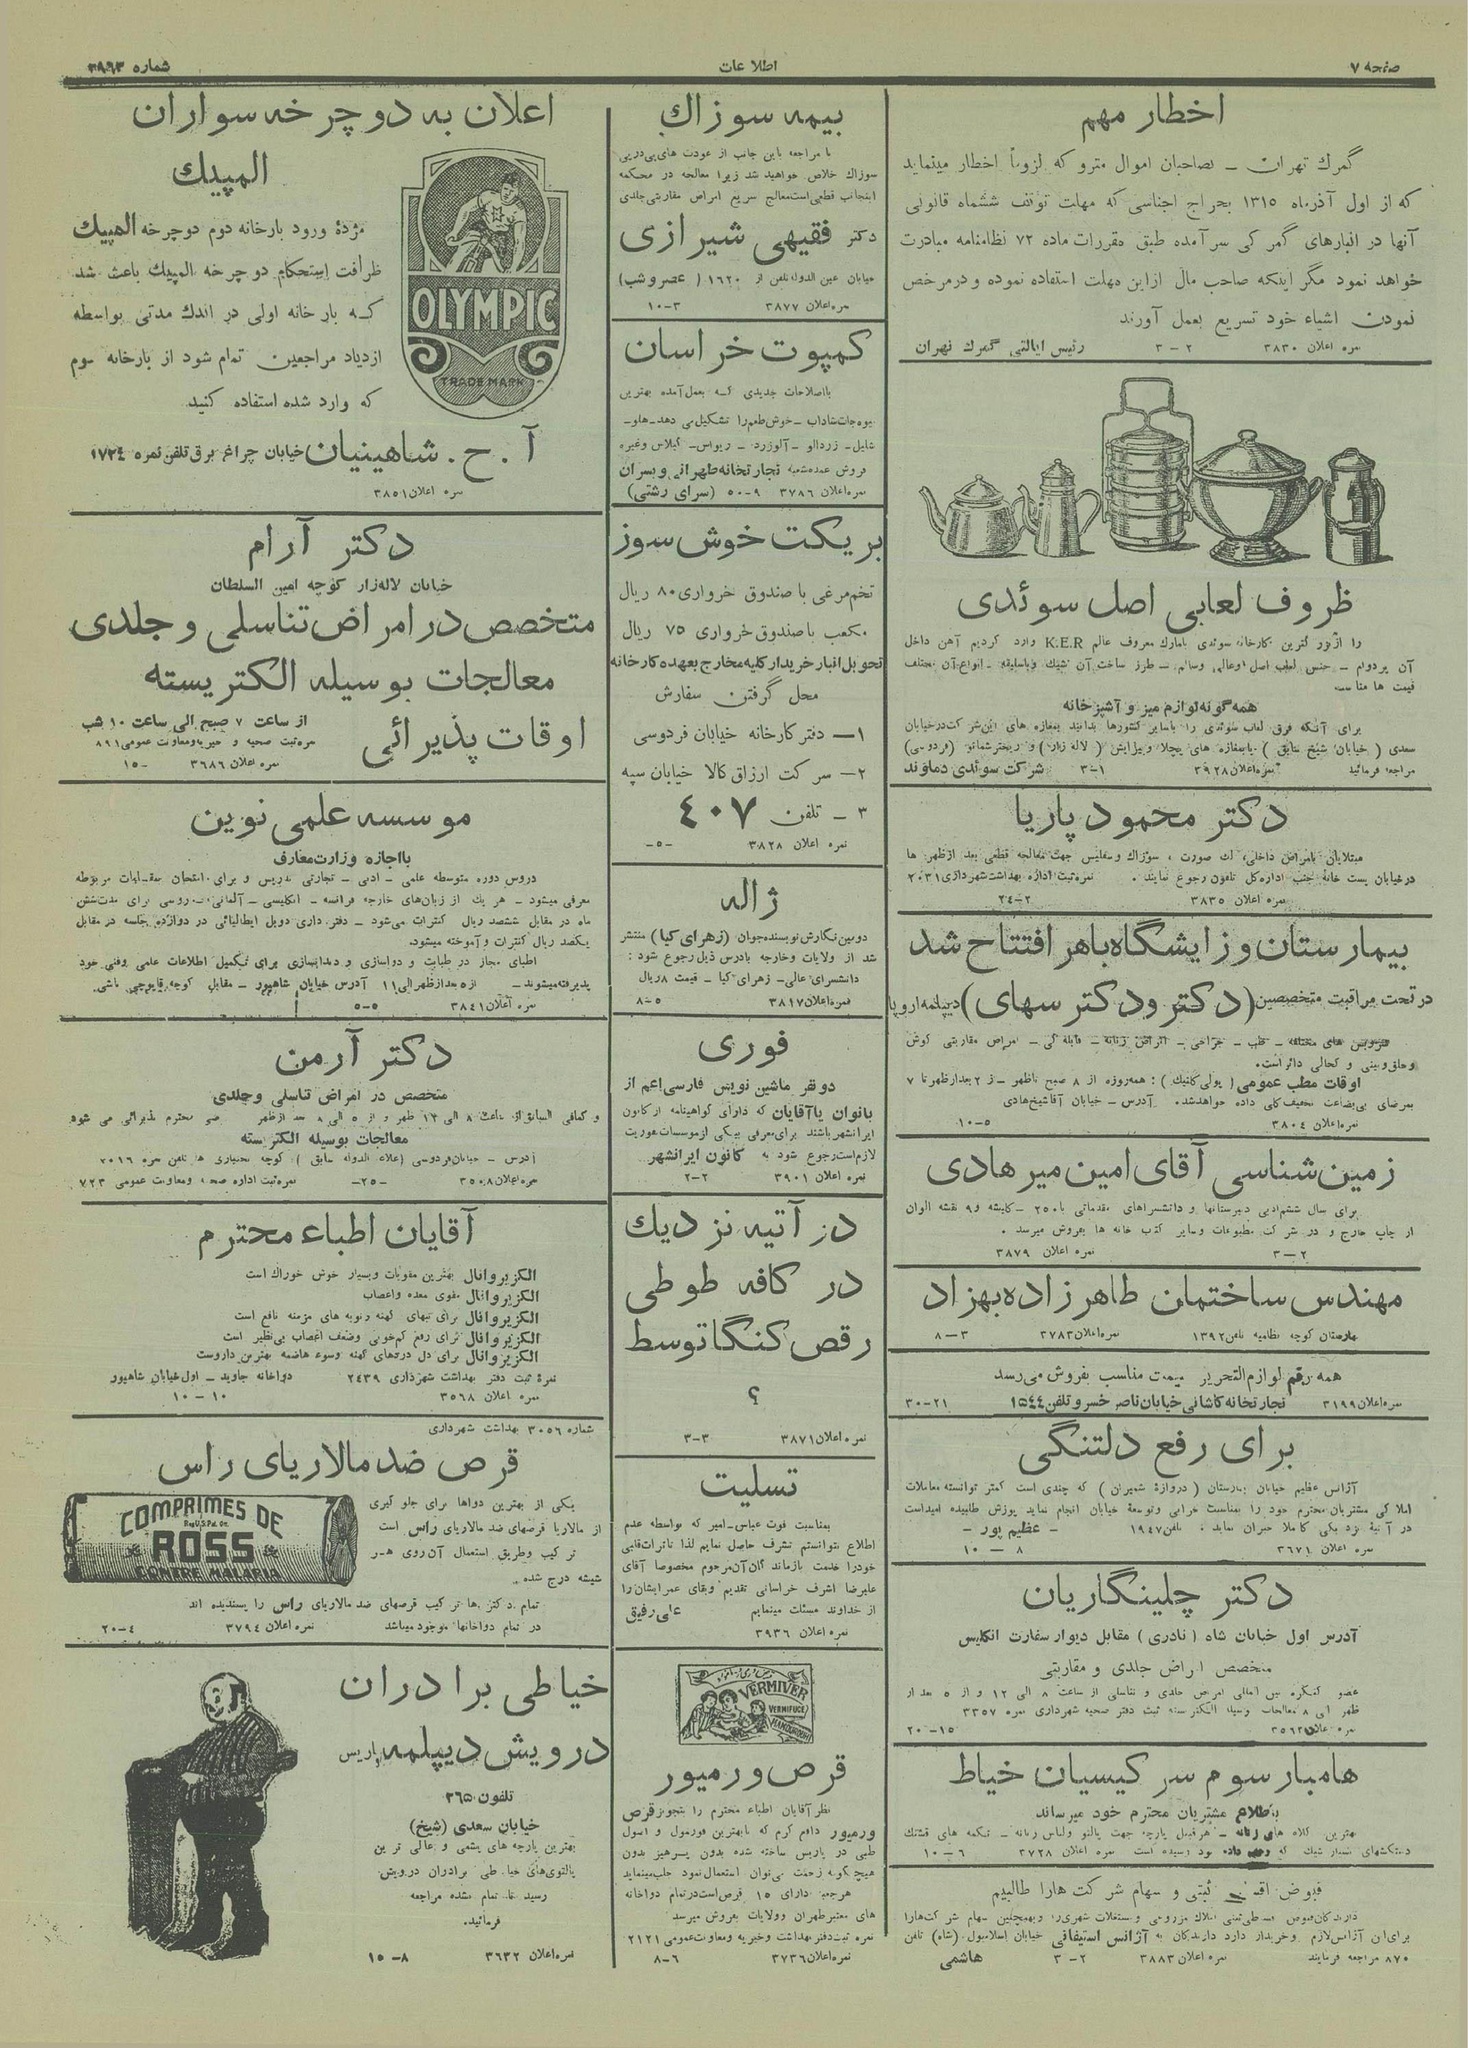 صفحه ۷
اطلاعات
شماره ۳۹۶۳
اخطار مهم
گمرك تهران ـ بصاحبان اموال مترو که لزوماً اخطار مینماید
که از اول آذرماه ۱۳۱۵ بحراج اجناسی که مهلت توقف ششماه قانونی
آنها در انبارهای گمرکی سر آمده طبق مقررات ماده ۷۲ نظامنامه مبادرت
خواهد نمود مگر اینکه صاحب مال ازاین مهلت استفاده نموده و درمرخص
نمودن اشیاء خود تسریع بعمل آورند
نمره اعلان ۳۸۳۰ ۲ – ۳ رئیس ایالتی گمرك تهران
ظروف لعابی اصل سوئدی
را از بزرگترین کارخانه سوئدی بامارك معروف عالم K.E.R وارد کردیم آهن داخل
آن پردوام ـ جنس لعاب اصل اوعالی وسالم ـ طرز ساخت آن شیك وباسلیقه ـ انواع آن مختلف
قیمت ها مناسب
همه گونه لوازم میز و آشپزخانه
برای آنکه فرق لعاب سوئدی را باسایر کشورها بدانید بمغازه های این شرکت درخیابان
سعدی (خیابان شیخ سابق) یابمغازه های پیچلا وپیرایش (لاله زار) و ریخترشمانو (فردوسی)
مراجعه فرمائید نمره اعلان ۳۹۲۸ ۱–۳ شرکت سوئدی دماوند
دکتر محمود پاریا
مبتلایان بامراض داخلی، لك صورت ، سوزاك وسفلیس جهت معالجه قطعی بعد ازظهر ها
درخیابان پست خانه جنب اداره کل تلفون رجوع نمایند . نمره ثبت اداره بهداشت شهرداری ۲۰۳۱
نمره اعلان ۳۸۳۵ ۲–۲۴
بیمارستان و زایشگاه باهر افتتاح شد
در تحت مراقبت متخصصین (دکتر ودکترسهای) دیپلمه اروپا
سرویس های مختلفه ـ طب ـ جراحی ـ امراض زنانه ـ قابلگی ـ امراض مقاربتی گوش
وحلق وبینی و کحالی دائر است.
اوقات مطب عمومی (پولی کلنیك) : همه روزه از ۸ صبح تاظهر ـ از ۲ بعدازظهر تا ۷
بمرضای بی بضاعت تخفیف کلی داده خواهدشد. آدرس ـ خیابان آقاشیخ هادی
نمره اعلان ۳۸۰۴ ۵–۱۰
زمین شناسی آقای امین میرهادی
برای سال ششم ادبی دبیرستانها و دانشسراهای مقدماتی با ۲۵۰ ـ کلیشه و ۹ نقشه الوان
از چاپ خارج و در شرکت مطبوعات وسایر کتب خانه ها بفروش میرسد .
نمره اعلان ۳۸۷۹ ۲–۳
مهندس ساختمان طاهرزاده بهزاد
بهارستان کوچه نظامیه تلفن ۱۳۹۲ نمره اعلان ۳۷۸۳ ۳–۸
همه رقم لوازم التحریر بقیمت مناسب بفروش می رسد
نمره اعلان ۳۱۹۹ تجارتخانه کاشانی خیابان ناصرخسرو تلفن ۱۵۴۴ ۲۱–۳۰
برای رفع دلتنگی
آژانس عظیم خیابان بهارستان (دروازه شمیران) که چندی است کمتر توانسته معاملات
املاکی مشتریان محترم خود را بمناسبت خرابی وتوسعهٔ خیابان انجام نماید پوزش طلبیده امیداست
در آتیهٔ نزدیکی کاملا جبران نماید ، تلفن ۱۹۴۷ ـ عظیم پور ـ
نمره اعلان ۳۶۷۱ ۸ – ۱۰
دکتر چلینگاریان
آدرس اول خیابان شاه (نادری) مقابل دیوار سفارت انگلیس
متخصص امراض جلدی و مقاربتی
عضو کنگره بین المللی امراض جلدی و تناسلی از ساعت ۸ الی ۱۲ و از ۵ بعد از
ظهر الی ۸ معالجات بوسیله الکتریسته ثبت دفتر صحیه شهرداری نمره ۳۳۵۷
نمره اعلان ۳۵۶۲ ۱۵–۲۰
هامبارسوم سرکیسیان خیاط
باطلاع مشتریان محترم خود میرساند
بهترین کلاه های زنانه ـ هرقبیل پارچه جهت پالتو ولباس زنانه ـ تکمه های قشنك
دستکشهای بسیار شیك که وعده داده بود رسیده است نمره اعلان ۳۷۲۸ ۶–۱۰
قبوض اقساط ثبتی و سهام شرکت هارا طالبیم
دارندگان قبوض قسطی ثبتی املاك مزروعی و مستغلات شهری را وبهمچنین سهام شرکت هارا
برای این آژانس لازم وخریدار دارد دارندگان به آژانس استیفائی خیابان اسلامبول (شاه) تلفن
۸۷۰ مراجعه فرمایند نمره اعلان ۳۸۸۳ ۲–۳ هاشمی
بیمه سوزاك
با مراجعه باین جانب از عودت های پی درپی
سوزاك خلاص خواهید شد زیرا معالجه در محکمه
اینجانب قطعی است معالج سریع امراض مقاربتی جلدی
دکتر فقیهی شیرازی
خیابان عین الدوله تلفن از ۱۶۲۰ (عصر وشب)
نمره اعلان ۳۸۷۷ ۳–۱۰
کمپوت خراسان
بااصلاحات جدیدی که بعمل آمده بهترین
میوه جات شاداب ـ خوش طعم را تشکیل می دهد ـ هلو ـ
شلیل ـ زردآلو ـ آلوزرد ـ ریواس ـ گیلاس وغیره
فروش عمده شعبه تجارتخانه طهرانی وپسران
نمره اعلان ۳۷۸۶ ۹–۵۰ (سرای رشتی)
بریکت خوش سوز
تخم مرغی با صندوق خرواری ۸۰ ریال
مکعب با صندوق خرواری ۷۵ ریال
تحویل انبار خریدار کلیه مخارج بعهده کارخانه
محل گرفتن سفارش
۱– دفتر کارخانه خیابان فردوسی
۲– شرکت ارزاق کالا خیابان سپه
۳ – تلفن ۴۰۷
نمره اعلان ۳۸۲۸ –۵–
ژاله
دومین نگارش نویسنده جوان (زهرای کیا) منتشر
شد از ولایات وخارجه بادرس ذیل رجوع شود :
دانشسرای عالی ـ زهرای کیا ـ قیمت ۸ ریال
نمره اعلان ۳۸۱۷ ۵–۸
فوری
دو نفر ماشین نویس فارسی اعم از
بانوان یا آقایان که دارای گواهینامه از کانون
ایرانشهر باشند برای معرفی بیکی ازموسسات فوریت
لازم است رجوع شود به کانون ایرانشهر
نمره اعلان ۳۹۰۱ ۲–۲
در آتیه نزدیك
در کافه طوطی
رقص کنگا توسط
؟
نمره اعلان ۳۸۷۱ ۳–۳
تسلیت
بمناسبت فوت عباس ـ امیر که بواسطه عدم
اطلاع نتوانستم تشرف حاصل نمایم لذا تاثرات قلبی
خودرا خدمت بازماندگان آن مرحوم مخصوصا آقای
علیرضا اشرف خراسانی تقدیم وبقای عمرایشان را
از خداوند مسئلت مینمایم علی رفیق
نمره اعلان ۳۹۳۶
VERMIVER
VERMIFUGE
قرص ورمیور
نظر آقایان اطباء محترم را بتجویز قرص
ورمیور دافع کرم که بابهترین فورمول و اصول
طبی در پاریس ساخته شده بدون پرهیز بدون
هیچگونه زحمت می توان استعمال نمود جلب مینماید
هرجعبه دارای ۱۵ قرص است در تمام دواخانه
های معتبر طهران وولایات بفروش میرسد
نمره ثبت دفتر بهداشت وخیریه ومعاونت عمومی ۲۱۲۱
نمره اعلان ۳۷۳۶ ۶–۸
اعلان به دوچرخه سواران
المپیك
OLYMPIC
TRADE MARK
مژدهٔ ورود بارخانه دوم دوچرخه المپیك
ظرافت استحکام دوچرخه المپیك باعث شد
که بارخانه اولی در اندك مدتی بواسطه
ازدیاد مراجعین تمام شود از بارخانه دوم
که وارد شده استفاده کنید
آ . ح . شاهینیان خیابان چراغ برق تلفن نمره ۱۷۲۴
نمره اعلان ۳۸۵۱
دکتر آرام
خیابان لاله زار کوچه امین السلطان
متخصص در امراض تناسلی و جلدی
معالجات بوسیله الکتریسته
اوقات پذیرائی
از ساعت ۷ صبح الی ساعت ۱۰ شب
نمره ثبت صحیه و خیریه ومعاونت عمومی ۸۹۱
نمره اعلان ۳۶۸۶ ۱۵–
موسسه علمی نوین
بااجازه وزارت معارف
دروس دوره متوسطه علمی ـ ادبی ـ تجارتی تدریس و برای امتحان بمقامات مربوطه
معرفی میشود ـ هر یك از زبان های خارجه فرانسه ـ انگلیسی ـ آلمانی ـ روسی برای مدت شش
ماه در مقابل ششصد ریال کنترات می شود ـ دفترداری دوبل ایطالیائی در دوازده جلسه در مقابل
یکصد ریال کنترات و آموخته میشود.
اطبای مجاز در طبابت و دواسازی و دندانسازی برای تکمیل اطلاعات علمی وفنی خود
پذیرفته میشوند ـ از ۵ بعد ازظهر الی ۱۱ آدرس خیابان شاهپور ـ مقابل کوچه قاپوچی باشی
نمره اعلان ۳۸۴۱ ۵–۵
دکتر آرمن
متخصص در امراض تناسلی وجلدی
و کمافی السابق از ساعت ۸ الی ۱۲ ظهر و از ۵ الی ۸ بعد ازظهر محترم پذیرائی می شود
معالجات بوسیله الکتریسته
آدرس ـ خیابان فردوسی (علاء الدوله سابق) کوچه بختیاری ها تلفن نمره ۲۰۱۶
نمره اعلان ۳۵۰۸ –۲۵– نمره ثبت اداره صحیه ومعاونت عمومی ۷۲۳
آقایان اطباء محترم
الکزیروانال بهترین مقویات وبسیار خوش خوراك است
الکزیروانال مقوی معده واعصاب
الکزیروانال برای تبهای کهنه ونوبه های مزمنه نافع است
الکزیروانال برای رفع کم خونی وضعف اعصاب بی نظیر است
الکزیروانال برای دل دردهای کهنه وسوء هاضمه بهترین داروست
نمرهٔ ثبت دفتر بهداشت شهرداری ۲۴۳۹ دواخانه جاوید ـ اول خیابان شاهپور
نمره اعلان ۳۵۶۸ ۱۰–۱۰
شماره ۳۰۵۶ بهداشت شهرداری
قرص ضد مالاریای راس
COMPRIMES DE
ROSS
CONTRE MALARIA
یکی از بهترین دواها برای جلوگیری
از مالاریا قرصهای ضد مالاریای راس است
ترکیب وطریق استعمال آن روی هر
شیشه درج شده.
تمام دکترها ترکیب قرصهای ضد مالاریای راس را پسندیده اند
در تمام دواخانها موجود میباشد نمره اعلان ۳۷۹۴ ۴–۲۰
خیاطی برادران
درویش دیپلمه پاریس
تلفون ۳۶۵
خیابان سعدی (شیخ)
بهترین پارچه های پشمی و عالی ترین
پالتوی های خیاطی برادران درویش
رسید تا تمام نشده مراجعه
فرمائید.
نمره اعلان ۳۶۳۲ ۸–۱۵